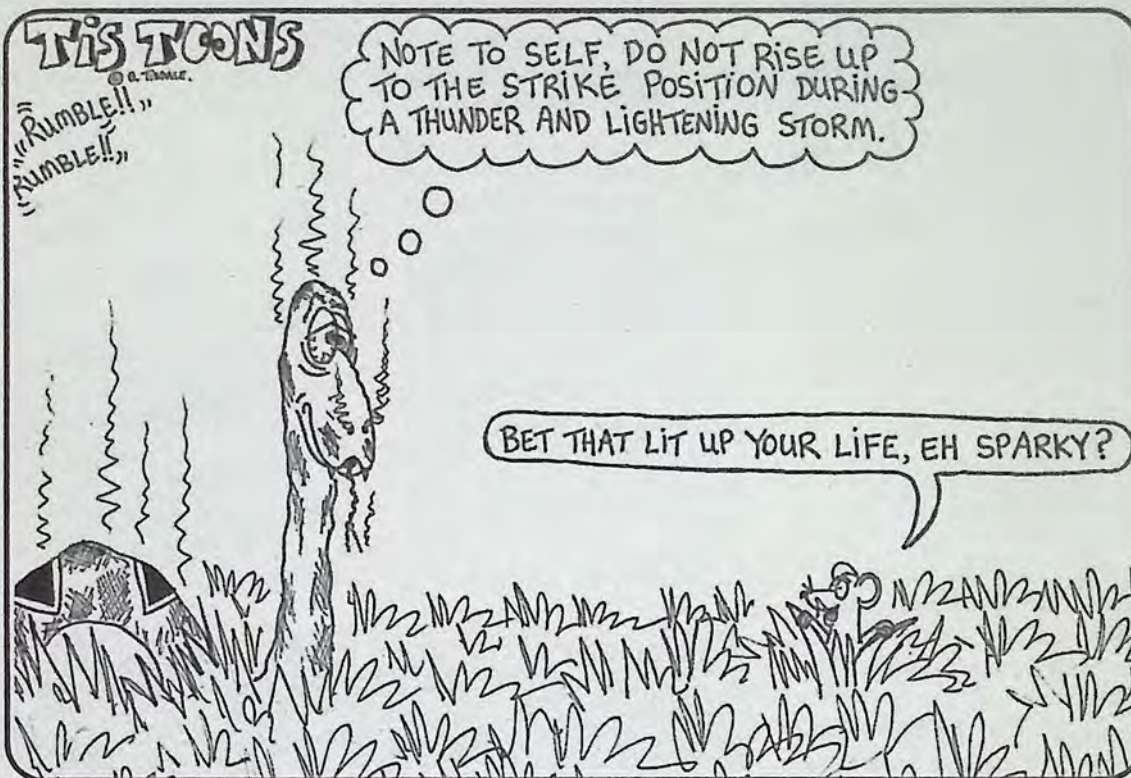 TiS TOONS
RUMBLE!!
RUMBLE!!
NOTE TO SELF, DO NOT RISE UP
TO THE STRIKE POSITION DURING
A THUNDER AND LIGHTENING STORM.
BET THAT LIT UP YOUR LIFE, EH SPARKY?